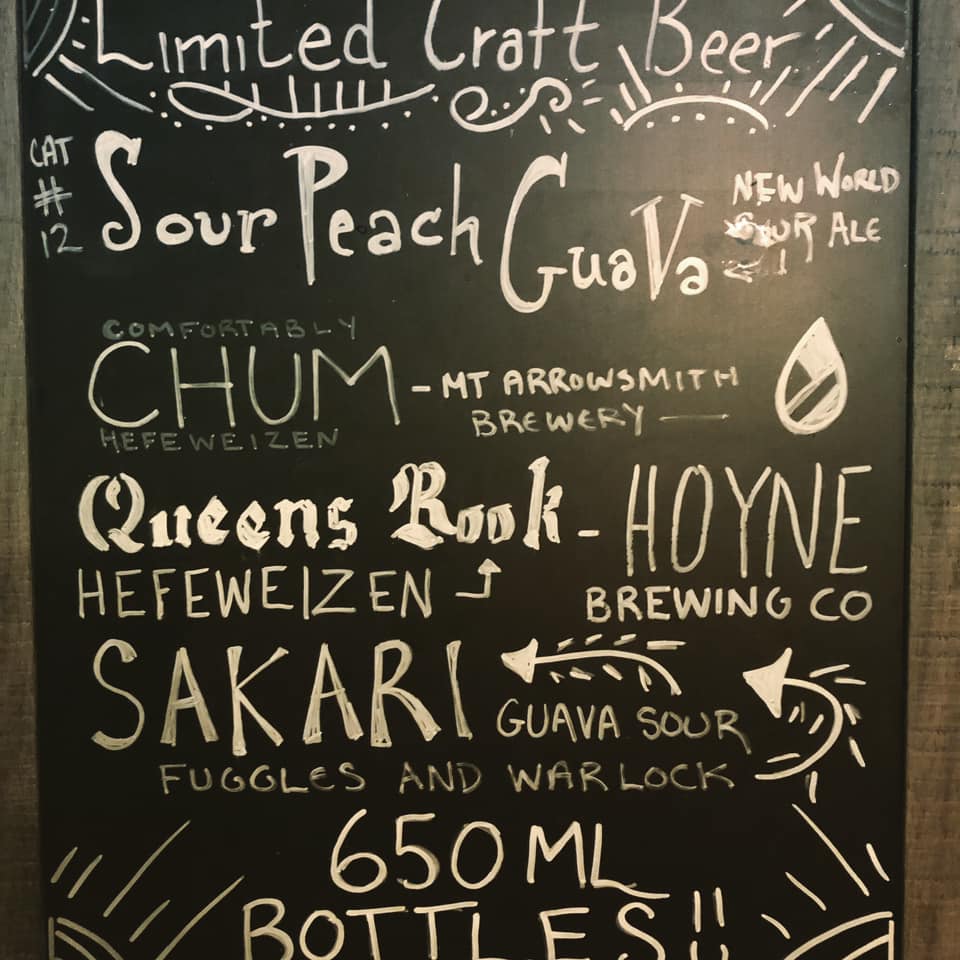 Limited Craft Beer
CAT
#
12
Sour Peach Guava
NEW WORLD
SOUR ALE
COMFORTABLY
CHUM - MT ARROWSMITH
BREWERY
HEFEWEIZEN
Queens Rook - HOYNE
HEFEWEIZEN
BREWING CO
SAKARI
GUAVA SOUR
FUGGLES AND WARLOCK
650ML
BOTTLES!!